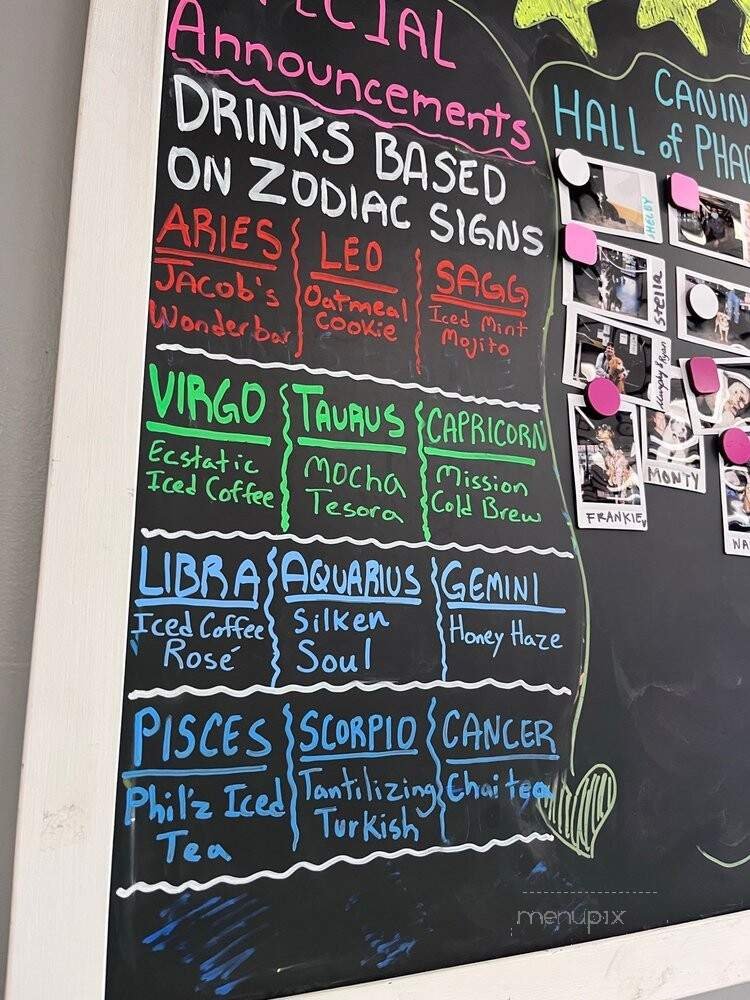 Announcements
DRINKS BASED
ON ZODIAC SIGNS
ARIES
Jacob's
Wonderbar
LEO
Oatmeal
Cookie
SAGG
Iced Mint
Mojito
VIRGO
Ecstatic
Iced Coffee
TAURUS
Mocha
Tesora
CAPRICORN
Mission
Cold Brew
LIBRA
Iced Coffee
Rosé
AQUARIUS
Silken
Soul
GEMINI
Honey Haze
PISCES
Philz Iced
Tea
SCORPIO
Tantilizing
Turkish
CANCER
Chai tea
HALL of
SHELBY
Stella
MONTY
FRANKIE
menupix